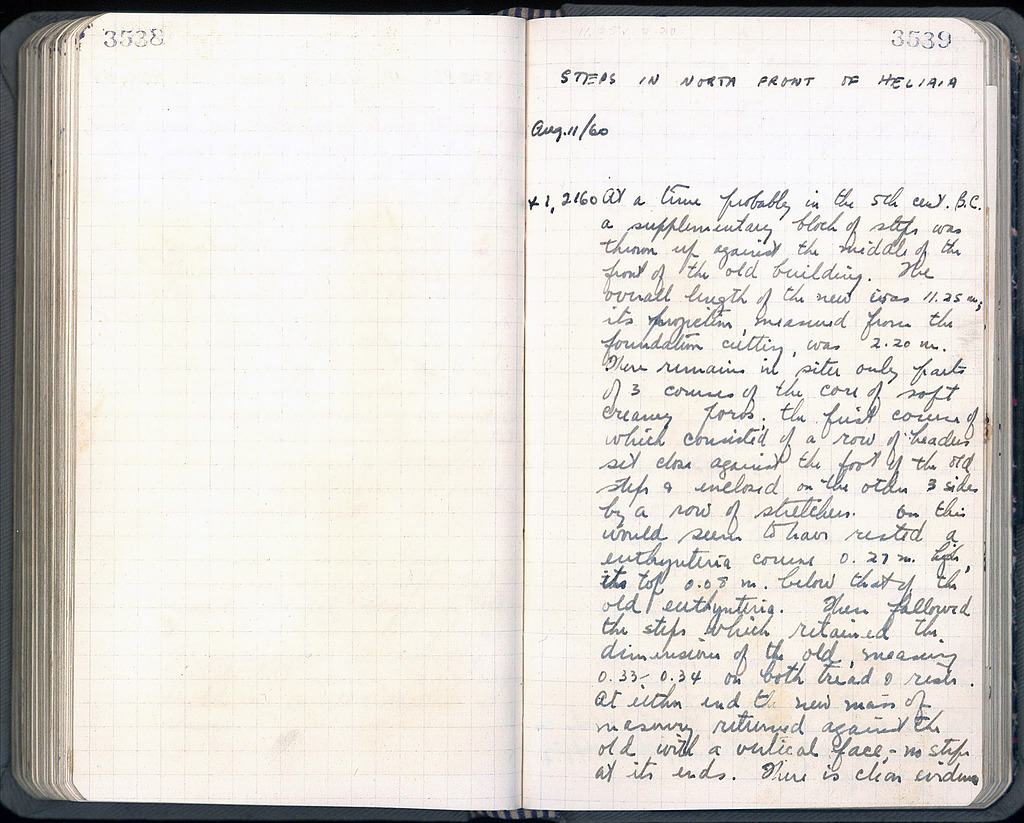 3538
3539
STEPS IN NORTH FRONT OF HELIAIA
Aug. 11/60
At a time probably in the 5th cent. B.C.
a supplementary block of steps was
thrown up against the middle of the
front of the old building. The
overall length of the new was 11.25 m;
its projection, measured from the
foundation cutting, was 2.20 m.
There remains in situ only parts
of 3 courses of the core of soft
creamy poros, the first course of
which consisted of a row of headers
set close against the foot of the old
steps & enclosed on the other 3 sides
by a row of stretchers. On this
would seem to have rested a
euthynteria course 0.27 m. high,
its top 0.08 m. below that of the
old euthynteria. Then followed
the steps which retained the
dimensions of the old, measuring
0.33-0.34 on both tread & riser.
At either end the new mass of
masonry returned against the
old with a vertical face,- no steps
at its ends. There is clear evidence